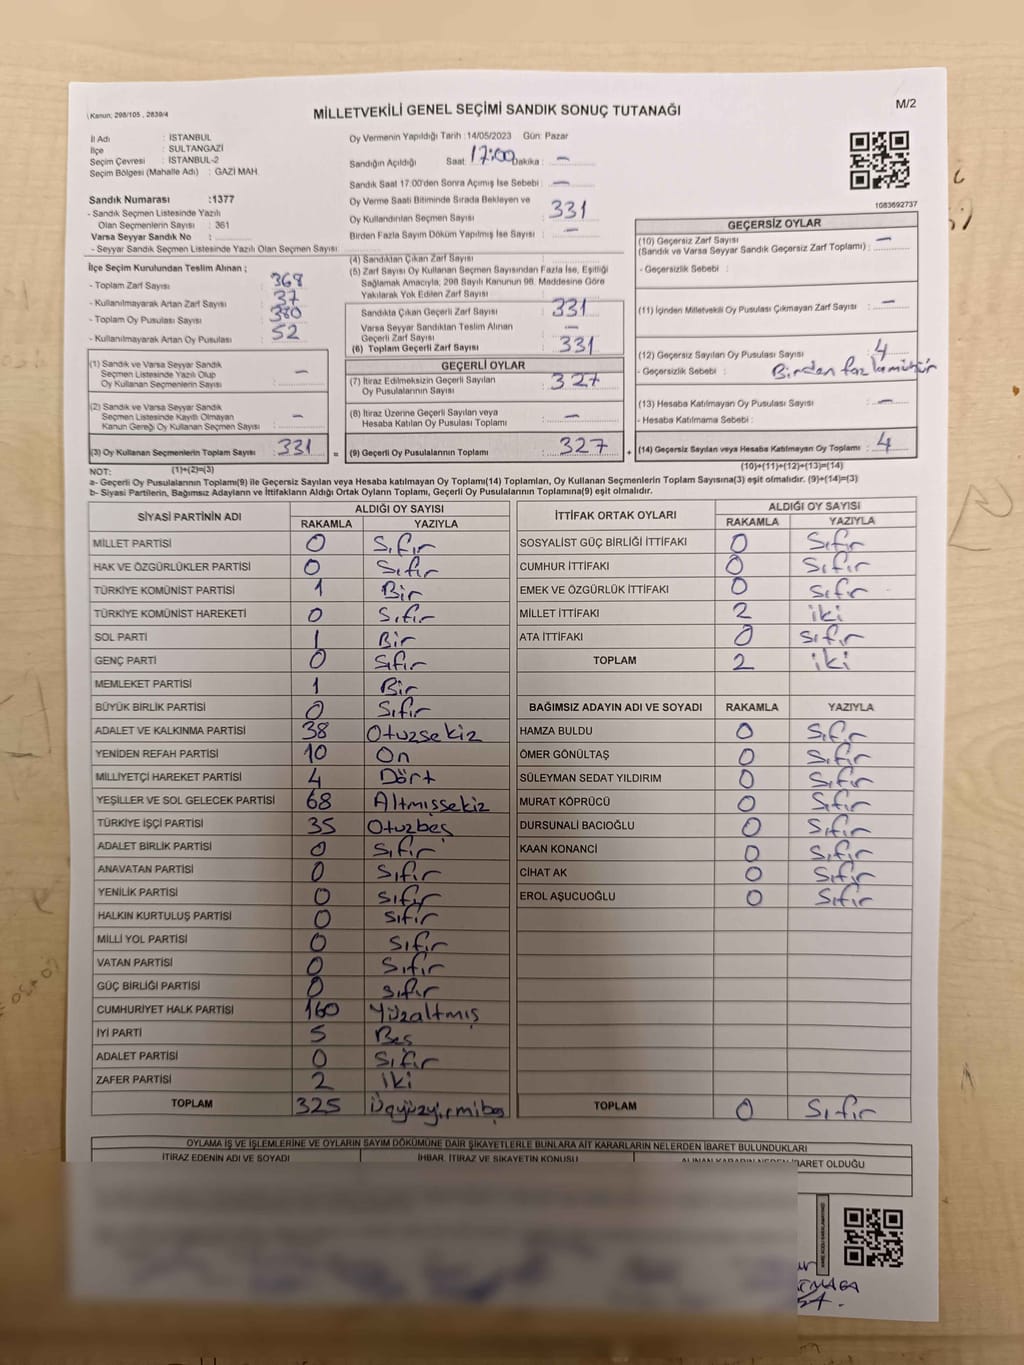 Kanun; 298/105 , 2839/4
MİLLETVEKİLİ GENEL SEÇİMİ SANDIK SONUÇ TUTANAĞI
M/2
İl Adı : İSTANBUL
İlçe : SULTANGAZİ
Seçim Çevresi : İSTANBUL-2
Seçim Bölgesi (Mahalle Adı) : GAZİ MAH.
Sandık Numarası : 1377
- Sandık Seçmen Listesinde Yazılı
Olan Seçmenlerin Sayısı : 361
Varsa Seyyar Sandık No :
- Seyyar Sandık Seçmen Listesinde Yazılı Olan Seçmen Sayısı:
Oy Vermenin Yapıldığı Tarih :14/05/2023 Gün: Pazar
Sandığın Açıldığı Saat: 17:00 Dakika : —
Sandık Saat 17:00'den Sonra Açmış İse Sebebi : —
Oy Verme Saati Bitiminde Sırada Bekleyen ve
Oy Kullandırılan Seçmen Sayısı : 331
Birden Fazla Sayım Döküm Yapılmış İse Sayısı : —
1083692737
İlçe Seçim Kurulundan Teslim Alınan ;
- Toplam Zarf Sayısı : 368
- Kullanılmayarak Artan Zarf Sayısı : 37
- Toplam Oy Pusulası Sayısı : 380
- Kullanılmayarak Artan Oy Pusulası : 52
(1) Sandık ve Varsa Seyyar Sandık
Seçmen Listesinde Yazılı Olup
Oy Kullanan Seçmenlerin Sayısı : —
(2) Sandık ve Varsa Seyyar Sandık
Seçmen Listesinde Kayıtlı Olmayan
Kanun Gereği Oy Kullanan Seçmen Sayısı : —
(3) Oy Kullanan Seçmenlerin Toplam Sayısı : 331 =
(4) Sandıktan Çıkan Zarf Sayısı :
(5) Zarf Sayısı Oy Kullanan Seçmen Sayısından Fazla İse, Eşitliği
Sağlamak Amacıyla, 298 Sayılı Kanunun 98. Maddesine Göre
Yakılarak Yok Edilen Zarf Sayısı :
Sandıkta Çıkan Geçerli Zarf Sayısı : 331
Varsa Seyyar Sandıktan Teslim Alınan
Geçerli Zarf Sayısı : —
(6) Toplam Geçerli Zarf Sayısı : 331
GEÇERLİ OYLAR
(7) İtiraz Edilmeksizin Geçerli Sayılan
Oy Pusulalarının Sayısı : 327
(8) İtiraz Üzerine Geçerli Sayılan veya
Hesaba Katılan Oy Pusulası Toplamı : —
(9) Geçerli Oy Pusulalarının Toplamı : 327 +
GEÇERSİZ OYLAR
(10) Geçersiz Zarf Sayısı
(Sandık ve Varsa Seyyar Sandık Geçersiz Zarf Toplamı) : —
- Geçersizlik Sebebi :
(11) İçinden Milletvekili Oy Pusulası Çıkmayan Zarf Sayısı : —
(12) Geçersiz Sayılan Oy Pusulası Sayısı : 4
- Geçersizlik Sebebi : Birden fazla mühür
(13) Hesaba Katılmayan Oy Pusulası Sayısı : —
- Hesaba Katılmama Sebebi :
(14) Geçersiz Sayılan veya Hesaba Katılmayan Oy Toplamı : 4
NOT: (1)+(2)=(3)
(10)+(11)+(12)+(13)=(14)
a- Geçerli Oy Pusulalarının Toplamı(9) ile Geçersiz Sayılan veya Hesaba katılmayan Oy Toplamı(14) Toplamları, Oy Kullanan Seçmenlerin Toplam Sayısına(3) eşit olmalıdır. (9)+(14)=(3)
b- Siyasi Partilerin, Bağımsız Adayların ve İttifakların Aldığı Ortak Oyların Toplamı, Geçerli Oy Pusulalarının Toplamına(9) eşit olmalıdır.
SİYASİ PARTİNİN ADI ALDIĞI OY SAYISI
RAKAMLA YAZIYLA
MİLLET PARTİSİ 0 Sıfır
HAK VE ÖZGÜRLÜKLER PARTİSİ 0 Sıfır
TÜRKİYE KOMÜNİST PARTİSİ 1 Bir
TÜRKİYE KOMÜNİST HAREKETİ 0 Sıfır
SOL PARTİ 1 Bir
GENÇ PARTİ 0 Sıfır
MEMLEKET PARTİSİ 1 Bir
BÜYÜK BİRLİK PARTİSİ 0 Sıfır
ADALET VE KALKINMA PARTİSİ 38 Otuzsekiz
YENİDEN REFAH PARTİSİ 10 On
MİLLİYETÇİ HAREKET PARTİSİ 4 Dört
YEŞİLLER VE SOL GELECEK PARTİSİ 68 Altmışsekiz
TÜRKİYE İŞÇİ PARTİSİ 35 Otuzbeş
ADALET BİRLİK PARTİSİ 0 Sıfır
ANAVATAN PARTİSİ 0 Sıfır
YENİLİK PARTİSİ 0 Sıfır
HALKIN KURTULUŞ PARTİSİ 0 Sıfır
MİLLİ YOL PARTİSİ 0 Sıfır
VATAN PARTİSİ 0 Sıfır
GÜÇ BİRLİĞİ PARTİSİ 0 Sıfır
CUMHURİYET HALK PARTİSİ 160 Yüzaltmış
İYİ PARTİ 5 Beş
ADALET PARTİSİ 0 Sıfır
ZAFER PARTİSİ 2 İki
TOPLAM 325 Üçyüzyirmibeş
İTTİFAK ORTAK OYLARI ALDIĞI OY SAYISI
RAKAMLA YAZIYLA
SOSYALİST GÜÇ BİRLİĞİ İTTİFAKI 0 Sıfır
CUMHUR İTTİFAKI 0 Sıfır
EMEK VE ÖZGÜRLÜK İTTİFAKI 0 Sıfır
MİLLET İTTİFAKI 2 iki
ATA İTTİFAKI 0 Sıfır
TOPLAM 2 iki
BAĞIMSIZ ADAYIN ADI VE SOYADI RAKAMLA YAZIYLA
HAMZA BULDU 0 Sıfır
ÖMER GÖNÜLTAŞ 0 Sıfır
SÜLEYMAN SEDAT YILDIRIM 0 Sıfır
MURAT KÖPRÜCÜ 0 Sıfır
DURSUNALİ BACIOĞLU 0 Sıfır
KAAN KONANCİ 0 Sıfır
CİHAT AK 0 Sıfır
EROL AŞUCUOĞLU 0 Sıfır
TOPLAM 0 Sıfır
OYLAMA İŞ VE İŞLEMLERİNE VE OYLARIN SAYIM DÖKÜMÜNE DAİR ŞİKAYETLERLE BUNLARA AİT KARARLARIN NELERDEN İBARET BULUNDUKLARI
İTİRAZ EDENİN ADI VE SOYADI İHBAR, İTİRAZ VE ŞİKAYETİN KONUSU ALINAN KARARIN NEDEN İBARET OLDUĞU